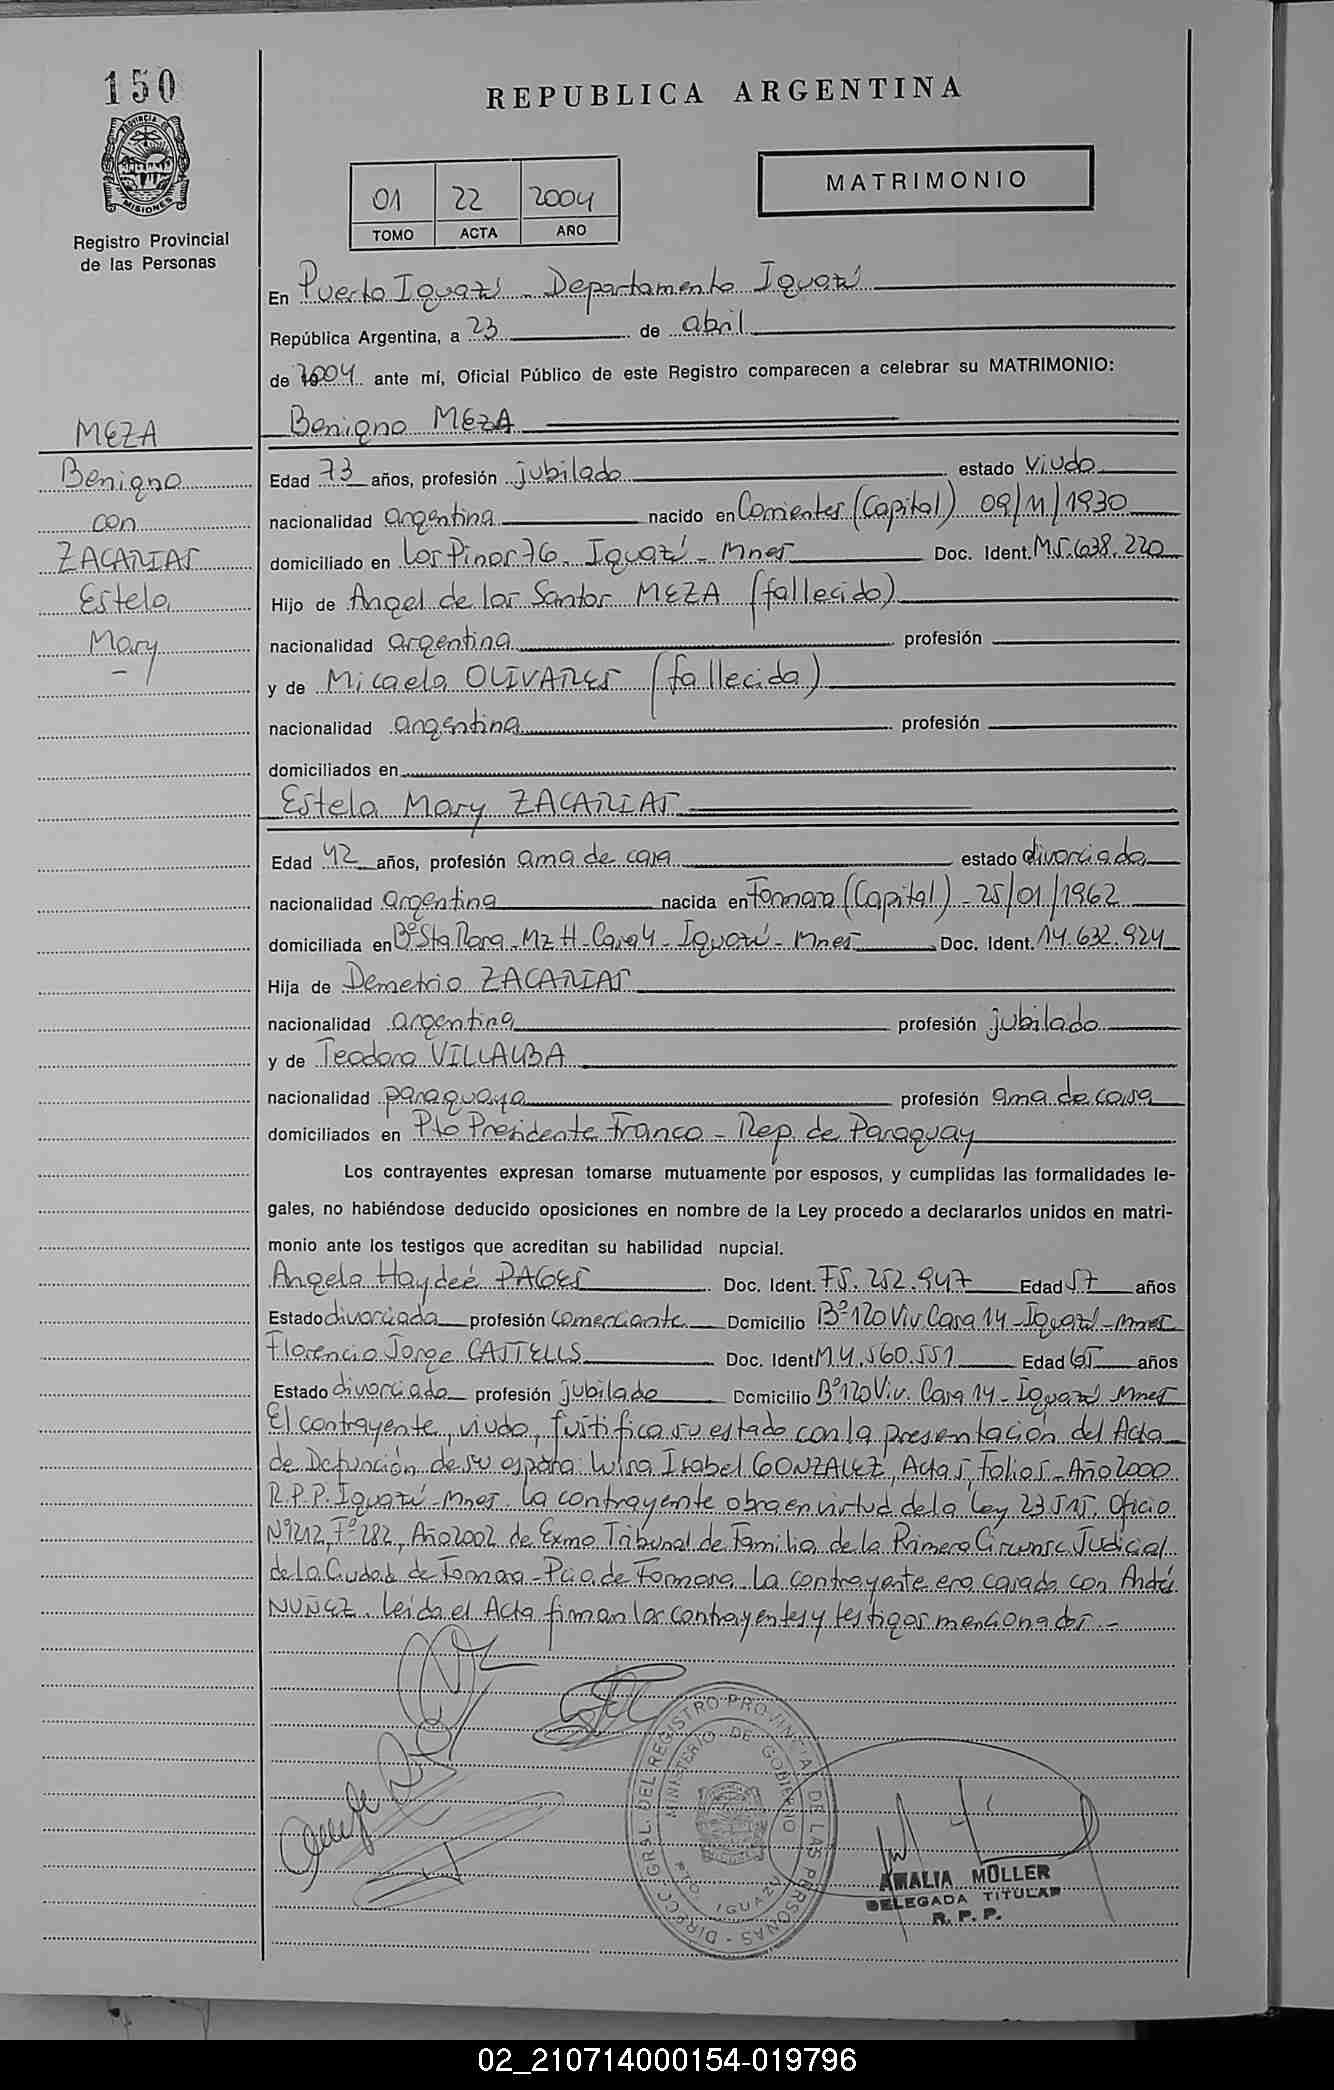 150
REPUBLICA ARGENTINA
PROVINCIA DE
MISIONES
Registro Provincial
de las Personas
MATRIMONIO
01 22 2004
TOMO ACTA AÑO
En Puerto Iguazú - Departamento Iguazú
República Argentina, a 23 de abril
de 2004 ante mí, Oficial Público de este Registro comparecen a celebrar su MATRIMONIO:
MEZA
Benigno
con
ZACARIAS
Estela
Mary
Benigno MEZA
Edad 73 años, profesión jubilado estado viudo
nacionalidad argentina nacido en Corrientes (Capital) 09/11/1930
domiciliado en Los Pinos 76 - Iguazú - Mnes Doc. Ident. M5.638.220
Hijo de Angel de los Santos MEZA (fallecido)
nacionalidad argentina profesión
y de Micaela OLIVARES (fallecida)
nacionalidad argentina profesión
domiciliados en
Estela Mary ZACARIAS
Edad 42 años, profesión ama de casa estado divorciada
nacionalidad argentina nacida en Formosa (Capital) - 25/01/1962
domiciliada en Bº Sta Rosa - Mz H - Casa 4 - Iguazú - Mnes Doc. Ident. 14.632.924
Hija de Demetrio ZACARIAS
nacionalidad argentina profesión jubilado
y de Teodora VILLALBA
nacionalidad paraguaya profesión ama de casa
domiciliados en Pto Presidente Franco - Rep. de Paraguay
Los contrayentes expresan tomarse mutuamente por esposos, y cumplidas las formalidades le-
gales, no habiéndose deducido oposiciones en nombre de la Ley procedo a declararlos unidos en matri-
monio ante los testigos que acreditan su habilidad nupcial.
Angela Haydeé PAGES Doc. Ident. F5.252.947 Edad 57 años
Estado divorciada profesión comerciante Domicilio Bº 120 Viv Casa 14 - Iguazú - Mnes
Florencio Jorge CASTELLS Doc. Ident M4.560.551 Edad 65 años
Estado divorciado profesión jubilado Domicilio Bº 120 Viv. Casa 14 - Iguazú Mnes
El contrayente, viudo, justifica su estado con la presentación del Acta
de Defunción de su esposa: Luisa Isabel GONZALEZ, Acta 5, Folio 5 - Año 2000
R.P.P. Iguazú - Mnes. La contrayente obra en virtud de la Ley 23515, Oficio
Nº 212, Fº 282, Año 2002 de Exmo Tribunal de Familia de la Primera Circunsc. Judicial
de la Ciudad de Formosa - Pcia de Formosa. La contrayente era casada con Andrés
NUÑEZ. Leída el Acta firman los contrayentes y testigos mencionados.-
DIRECC. GRAL. DEL REGISTRO PROVINCIAL DE LAS PERSONAS
MINISTERIO DE GOBIERNO
PTO. IGUAZU
AMALIA MULLER
DELEGADA TITULAR
R. P. P.
02_210714000154-019796